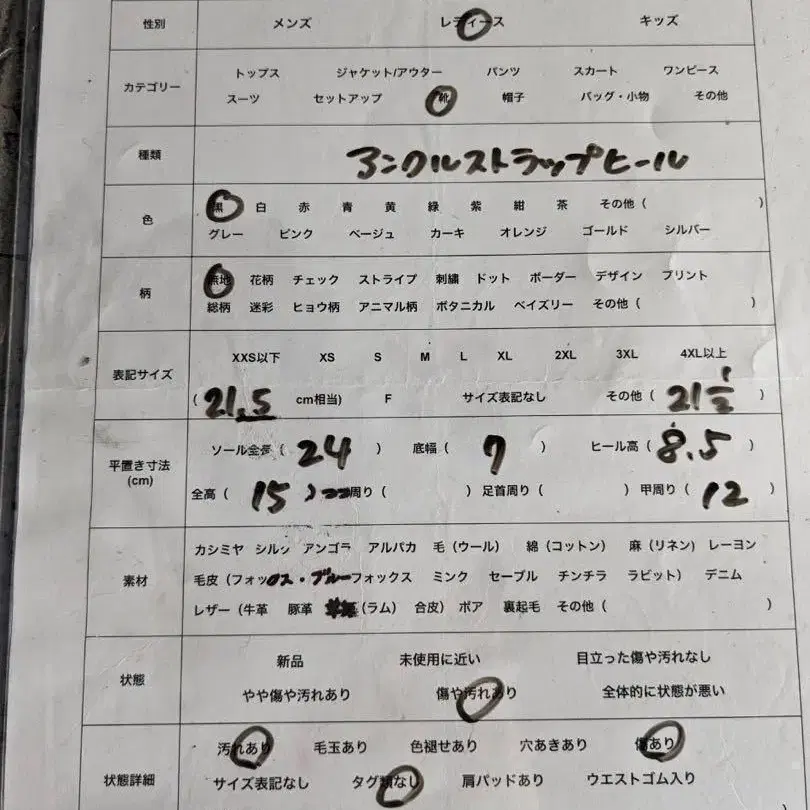 性別 メンズ レディース キッズ
カテゴリー トップス ジャケット/アウター パンツ スカート ワンピース
スーツ セットアップ 靴 帽子 バッグ・小物 その他
種類 アンクルストラップヒール
色 黒 白 赤 青 黄 緑 紫 紺 茶 その他 ( )
グレー ピンク ベージュ カーキ オレンジ ゴールド シルバー
柄 無地 花柄 チェック ストライプ 刺繍 ドット ボーダー デザイン プリント
総柄 迷彩 ヒョウ柄 アニマル柄 ボタニカル ペイズリー その他 ( )
表記サイズ XXS以下 XS S M L XL 2XL 3XL 4XL以上
( 21.5 cm相当) F サイズ表記なし その他 ( 21 1/2 )
平置き寸法 (cm) ソール全長 ( 24 ) 底幅 ( 7 ) ヒール高 ( 8.5 )
全高 ( 15 ) 周り ( ) 足首周り ( ) 甲周り ( 12 )
素材 カシミヤ シルク アンゴラ アルパカ 毛 (ウール) 綿 (コットン) 麻 (リネン) レーヨン
毛皮 (フォックス・ブルーフォックス ミンク セーブル チンチラ ラビット) デニム
レザー (牛革 豚革 (ラム) 合皮) ボア 裏起毛 その他 ( )
状態 新品 未使用に近い 目立った傷や汚れなし
やや傷や汚れあり 傷や汚れあり 全体的に状態が悪い
状態詳細 汚れあり 毛玉あり 色褪せあり 穴あきあり 傷あり
サイズ表記なし タグ類なし 肩パッドあり ウエストゴム入り
)